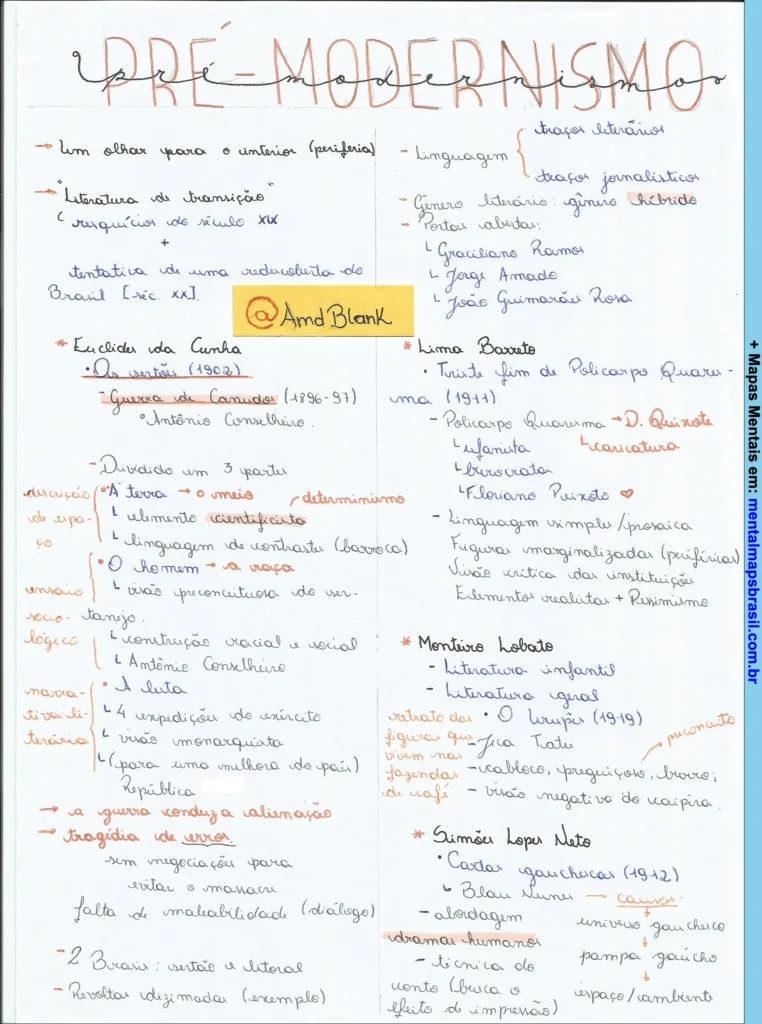 PRÉ-MODERNISMO
pré-modernismo
→ Um olhar para o interior (periferia)
→ "Literatura de transição"
resquícios do século XIX
+
tentativa de uma redescoberta do
Brasil [séc. XX].
@AmdBlank
* Euclides da Cunha
• Os sertões (1902)
- Guerra de Canudos (1896-97)
° Antônio Conselheiro.
- Dividido em 3 partes
descrição de espaço
• A terra → o meio
determinismo
elemento cientificista
linguagem de contrastes (barroca)
ensaio sociológico
• O homem → a raça
visão preconceituosa do ser-
tanejo.
construção racial e social
Antônio Conselheiro
narrativa literária
• A luta
4 expedições do exército
visão monarquista
(para uma melhora do país)
República
→ a guerra conduz a alienação
→ tragédia de erros.
sem negociações para
evitar o massacre
falta de maleabilidade (diálogo)
- 2 Brasis: sertão e litoral
- Revoltas dizimadas (exemplo)
- Linguagem
traços literários
traços jornalísticos
- Gênero literário: gênero híbrido
- Portas abertas:
Graciliano Ramos
Jorge Amado
João Guimarães Rosa
* Lima Barreto
• Triste fim de Policarpo Quares-
ma (1911).
- Policarpo Quaresma → D. Quixote
ufanista
caricatura
burocrata
Floriano Peixoto ♡
- Linguagem simples/prosaica
Figuras marginalizadas (periféricas)
Visão crítica das instituições
Elementos realistas + Pessimismo
* Monteiro Lobato
- Literatura infantil
- Literatura geral
• O Urupês (1919)
retrato das
figuras que
vivem nas
fazendas
de café
- Jeca Tatu
preconceito
- caboclo, preguiçoso, burro;
- visão negativa do caipira.
* Simões Lopes Neto
• Contos gauchescos (1912)
Blau Nunes → causos.
- abordagem
dramas humanos
- técnica do
conto (busca o
efeito de impressão)
universo gauchesco
↓
pampa gaúcho
↓
espaço/ambiente
+ Mapas Mentais em: mentalmapsbrasil.com.br